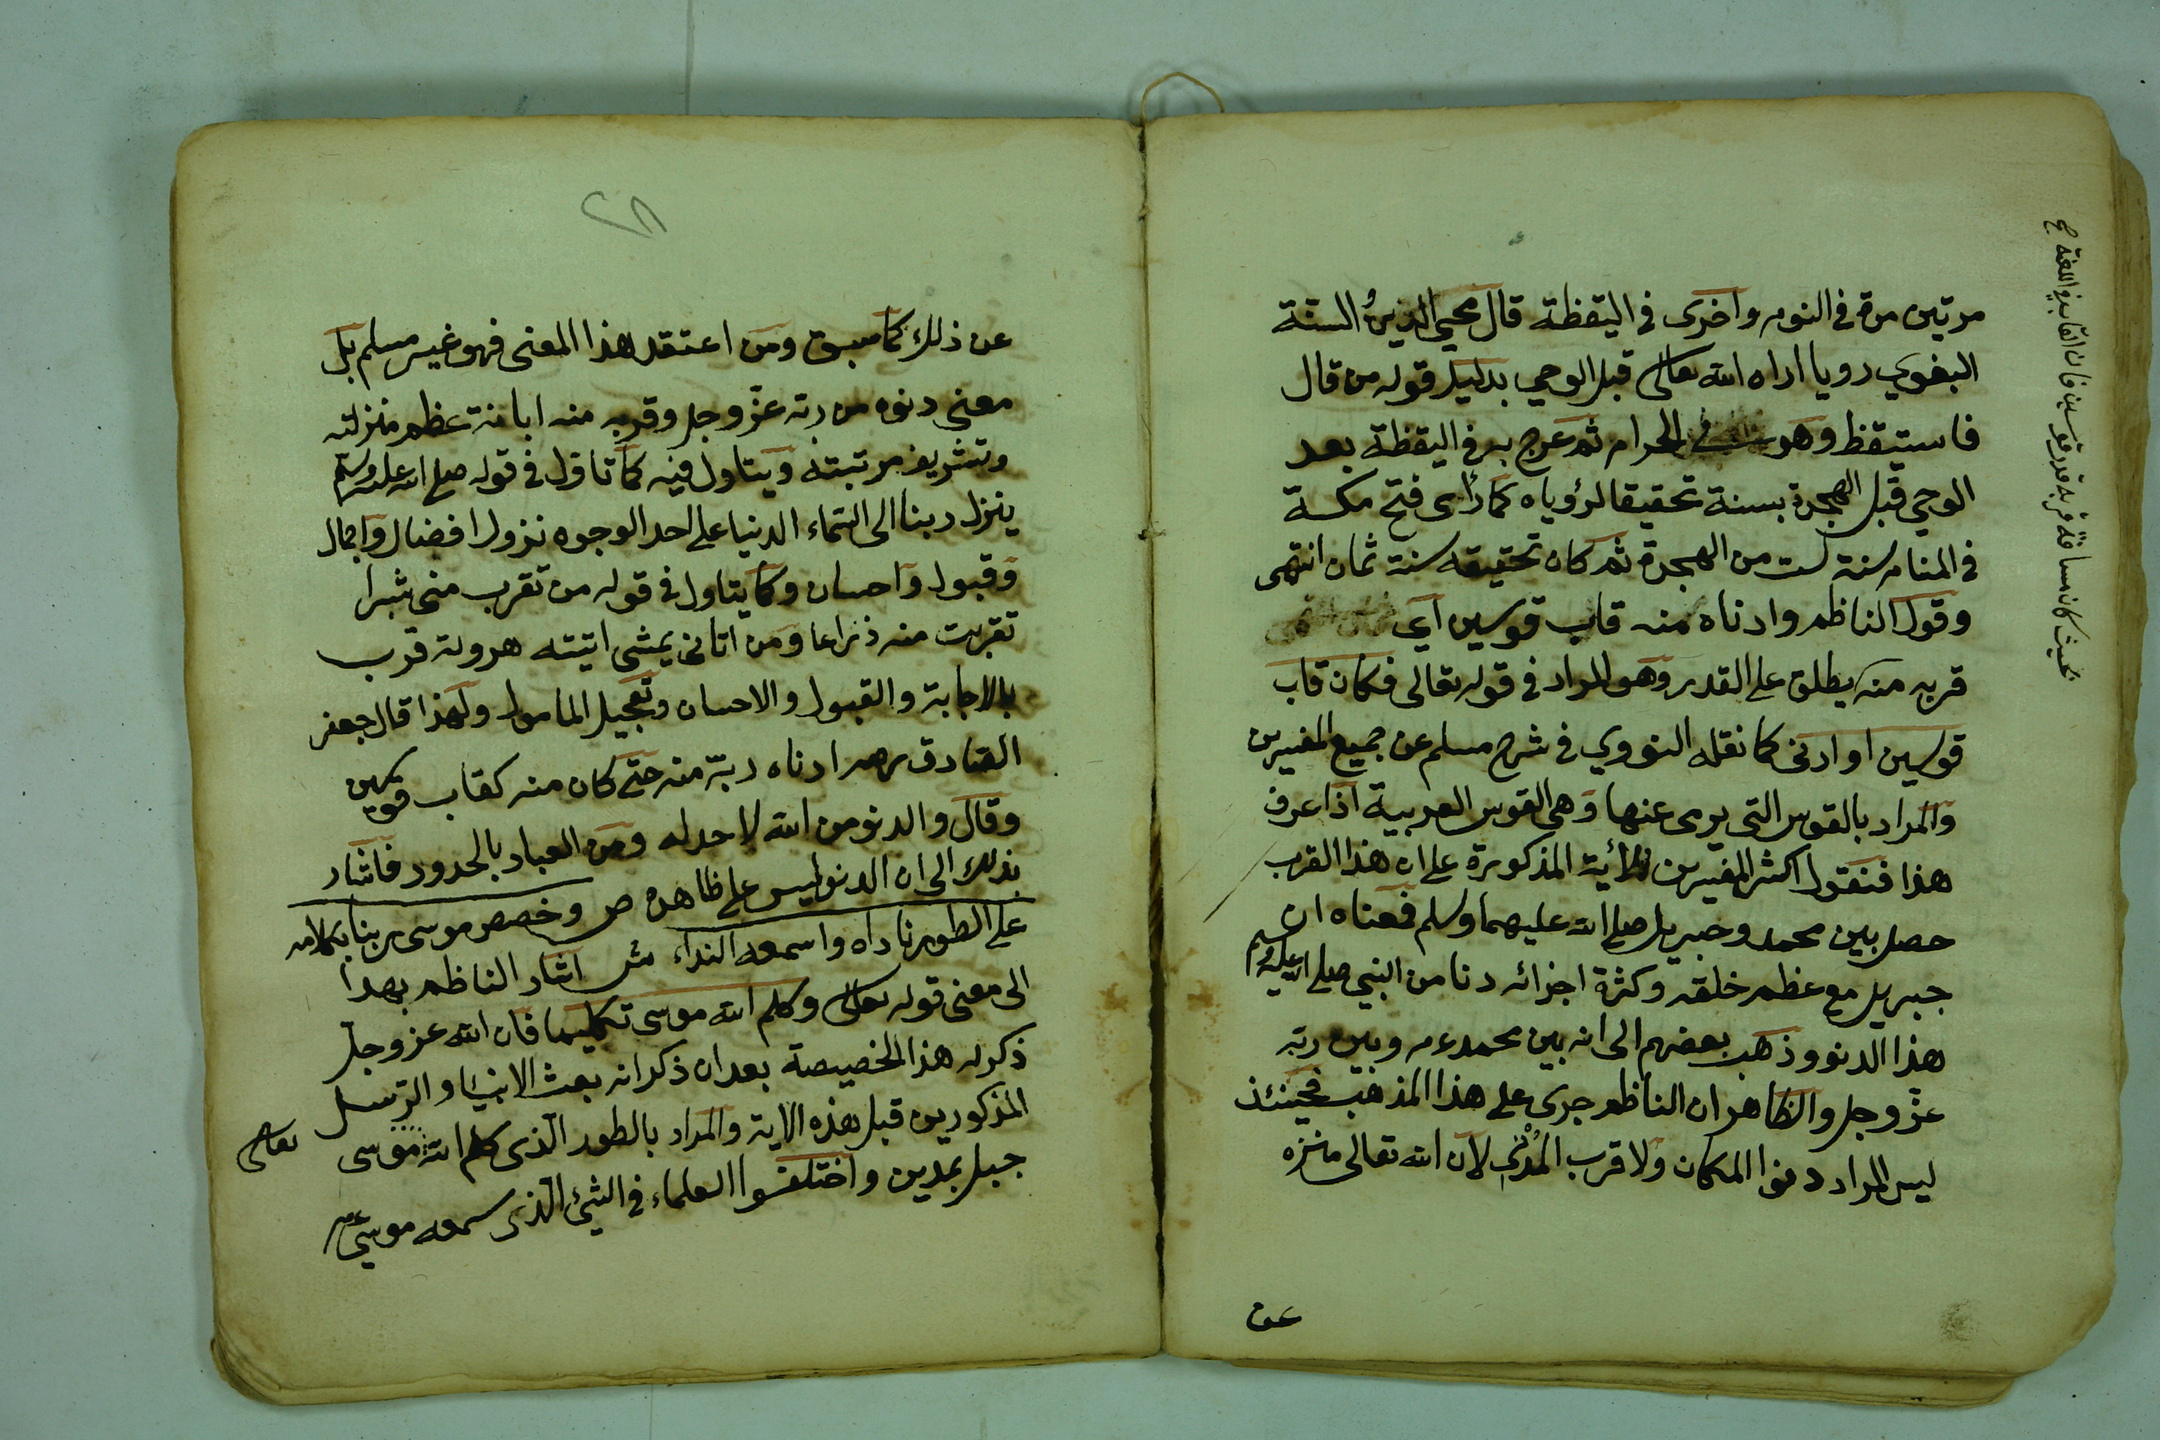 مرتين مرة في النوم واخرى في اليقظة قال محيي الدين السنة
البغوي رويا اراه الله تعالى قبل الوحي بدليل قوله من قال
فاستيقظ وهو في الحرام ثم عرج به في اليقظة بعد
الوحي قبل الهجرة بسنة تحقيقا لرؤياه كما رأى فتح مكة
في المنام سنة ست من الهجرة ثم كان تحقيقه سنة ثمان انتهى
وقول الناظم وادناه منه قاب قوسين اي
قربه منه يطلق على القدر وهو المراد في قوله تعالى فكان قاب
قوسين او ادنى كما نقله النووي في شرح مسلم عن جميع المفسرين
والمراد بالقوس التي يرمى عنها وهي القوس العربية اذا عرف
هذا فنقول اكثر المفسرين للأية المذكورة على ان هذا القرب
حصل بين محمد وجبريل صلى الله عليهما وسلم فمعناه ان
جبريل مع عظم خلقه وكثرة اجزائه دنا من النبي صلى الله عليه وسلم
هذا الدنو وذهب بعضهم الى انه بين محمد عم وبين ربه
عزّ وجل والظاهر ان الناظم جرى على هذا المذهب فحينئذ
ليس المراد دنوا المكان ولا قرب المُدْنى لان الله تعالى منزه
عن
بحيث كان مسافة قربه قدر قوسين فان القاب في اللغة صح
٢٨
عن ذلك كما سبق ومن اعتقد هذا المعنى فهو غير مسلم بل
معنى دنوه من ربه عزّ وجل وقربه منه ابانة عظم منزلته
وتشريف مرتبته ويتاول فيه كما تاول في قوله صلى الله عليه وسلم
ينزل ربنا الى السماء الدنيا على احد الوجوه نزول افضال واجمال
وقبول واحسان وكما يتاول في قوله من تقرب منى شبرا
تقربت منه ذراعا ومن اتانى يمشى اتيته هرولة قرب
بالاجابة والقبول والاحسان وتعجيل المامول ولهذا قال جعفر
الصادق رضه ادناه ربه منه حتى كان منه كقاب قوسين
وقال والدنو من الله لا حد له ومن العباد بالحدود فاشار
بذلك الى ان الدنو ليس على ظاهره ص وخصص موسى ربنا بكلامه
على الطور ناداه واسمعه النداء ش اشار الناظم بهذا
الى معنى قوله تعالى وكلم الله موسى تكليما فان الله عز وجل
ذكر له هذا الخصيصة بعد ان ذكر انه بعث الانبياء والرسل
المذكورين قبل هذه الاية والمراد بالطور الذى كلم الله موسى
تعالى
جبل بمدين واختلفوا العلماء في الشئ الذى سمعه موسى عم